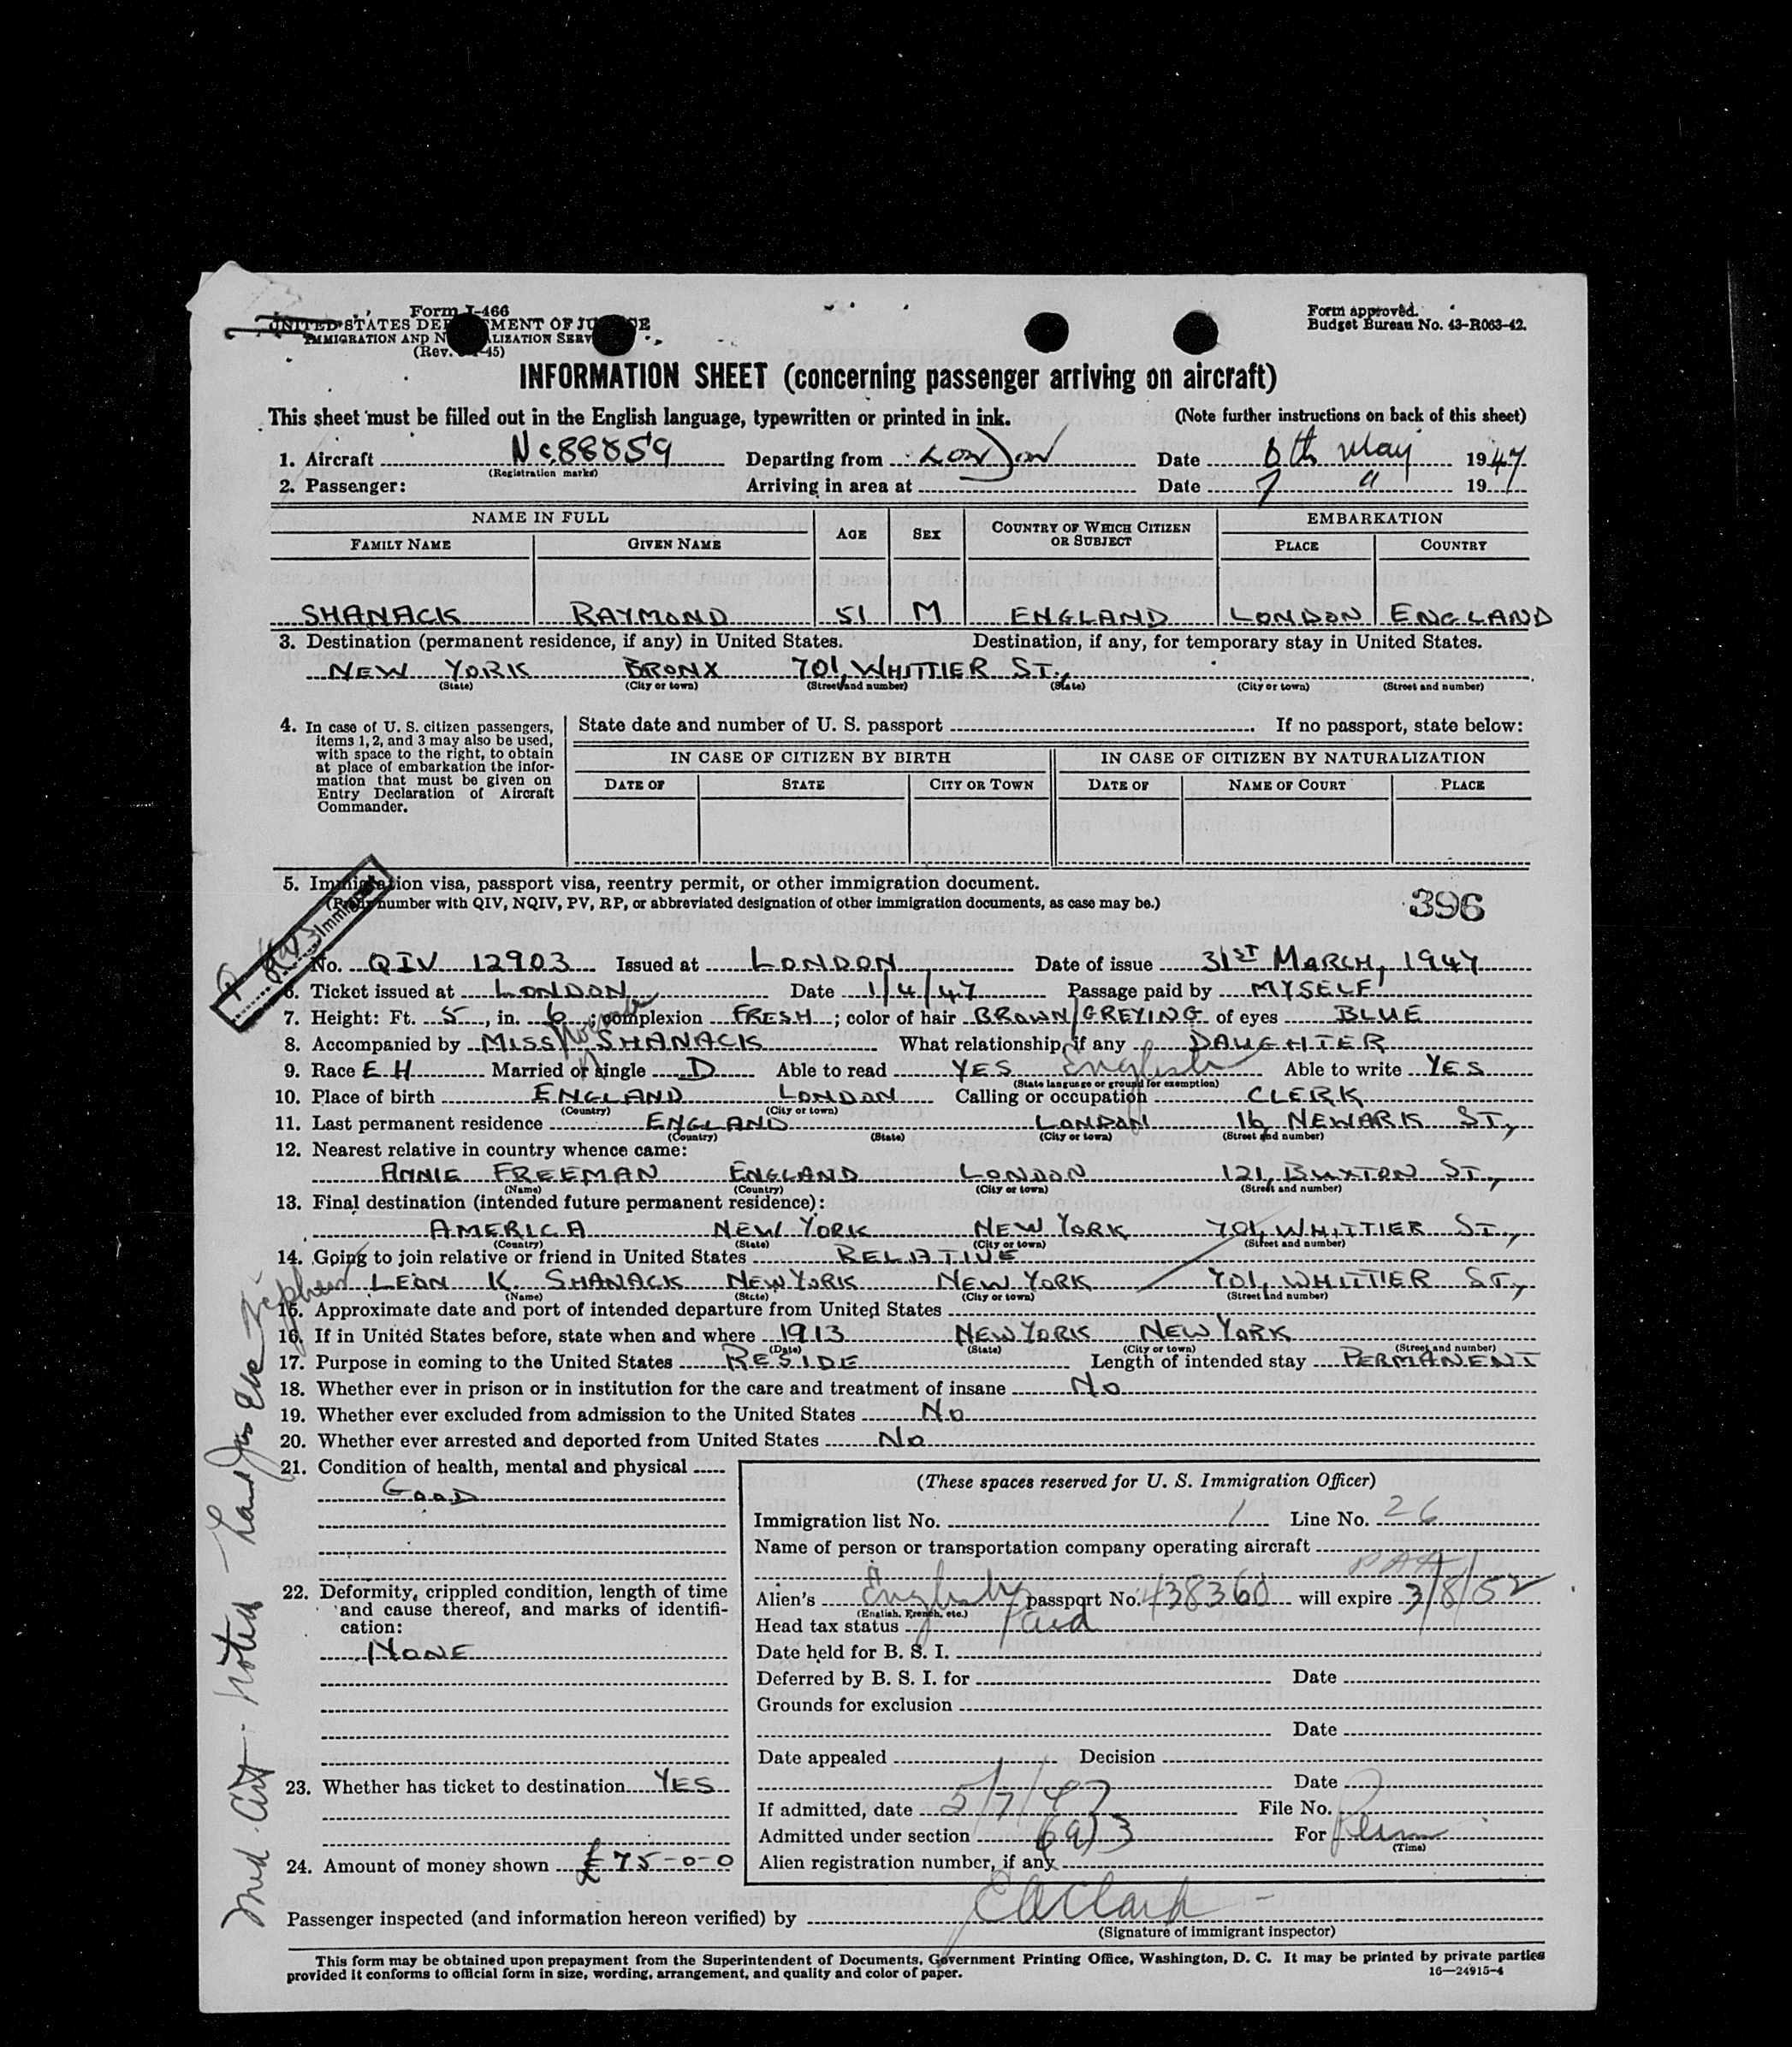 Form I-466
UNITED STATES DEPARTMENT OF JUSTICE
IMMIGRATION AND NATURALIZATION SERV
(Rev. 45)
Form approved.
Budget Bureau No. 43-R063-42.
INFORMATION SHEET (concerning passenger arriving on aircraft)
This sheet must be filled out in the English language, typewritten or printed in ink. (Note further instructions on back of this sheet)
1. Aircraft Nc.88859 Departing from LONDON Date 6th May 1947
(Registration marks)
2. Passenger: Arriving in area at Date 7 " 1947
NAME IN FULL AGE SEX COUNTRY OF WHICH CITIZEN OR SUBJECT EMBARKATION
FAMILY NAME GIVEN NAME PLACE COUNTRY
SHANACK RAYMOND 51 M ENGLAND LONDON ENGLAND
3. Destination (permanent residence, if any) in United States. Destination, if any, for temporary stay in United States.
NEW YORK BRONX 701, WHITTIER ST.,
(State) (City or town) (Street and number) (State) (City or town) (Street and number)
4. In case of U. S. citizen passengers, items 1, 2, and 3 may also be used, with space to the right, to obtain at place of embarkation the information that must be given on Entry Declaration of Aircraft Commander.
State date and number of U. S. passport If no passport, state below:
IN CASE OF CITIZEN BY BIRTH IN CASE OF CITIZEN BY NATURALIZATION
DATE OF STATE CITY OR TOWN DATE OF NAME OF COURT PLACE
5. Immigration visa, passport visa, reentry permit, or other immigration document.
(Prefix number with QIV, NQIV, PV, RP, or abbreviated designation of other immigration documents, as case may be.)
396
Immigrant
No. QIV 12903 Issued at LONDON Date of issue 31ST MARCH, 1947
6. Ticket issued at LONDON Date 1/4/47 Passage paid by MYSELF
7. Height: Ft. 5, in. 6; complexion FRESH; color of hair BROWN/GREYING of eyes BLUE
8. Accompanied by MISS SHANACK What relationship, if any DAUGHTER
9. Race E H Married or single D Able to read YES English Able to write YES
(State language or ground for exemption)
10. Place of birth ENGLAND LONDON Calling or occupation CLERK
(Country) (City or town)
11. Last permanent residence ENGLAND LONDON 16, NEWARK ST.,
(Country) (State) (City or town) (Street and number)
12. Nearest relative in country whence came:
ANNIE FREEMAN ENGLAND LONDON 121, BUXTON ST.,
(Name) (Country) (City or town) (Street and number)
13. Final destination (intended future permanent residence):
AMERICA NEW YORK NEW YORK 701, WHITTIER ST.,
(Country) (State) (City or town) (Street and number)
14. Going to join relative or friend in United States RELATIVE
LEON K. SHANACK NEW YORK NEW YORK 701, WHITTIER ST.,
(Name) (State) (City or town) (Street and number)
15. Approximate date and port of intended departure from United States
16. If in United States before, state when and where 1913 NEW YORK NEW YORK
(Date) (State) (City or town) (Street and number)
17. Purpose in coming to the United States RESIDE Length of intended stay PERMANENT
18. Whether ever in prison or in institution for the care and treatment of insane NO
19. Whether ever excluded from admission to the United States NO
20. Whether ever arrested and deported from United States NO
21. Condition of health, mental and physical
GOOD
22. Deformity, crippled condition, length of time and cause thereof, and marks of identification:
NONE
23. Whether has ticket to destination YES
24. Amount of money shown £75-0-0
(These spaces reserved for U. S. Immigration Officer)
Immigration list No. 1 Line No. 26
Name of person or transportation company operating aircraft
PAA
Alien's English passport No. 438360 will expire 3/8/52
(English, French, etc.)
Head tax status Paid
Date held for B. S. I.
Deferred by B. S. I. for Date
Grounds for exclusion
Date
Date appealed Decision
Date
If admitted, date 5/7/47 File No.
Admitted under section 6(a)3 For Perm
(Time)
Alien registration number, if any
Passenger inspected (and information hereon verified) by
(Signature of immigrant inspector)
Med. Cert. noted
This form may be obtained upon prepayment from the Superintendent of Documents, Government Printing Office, Washington, D. C. It may be printed by private parties
provided it conforms to official form in size, wording, arrangement, and quality and color of paper. 16—24915-4